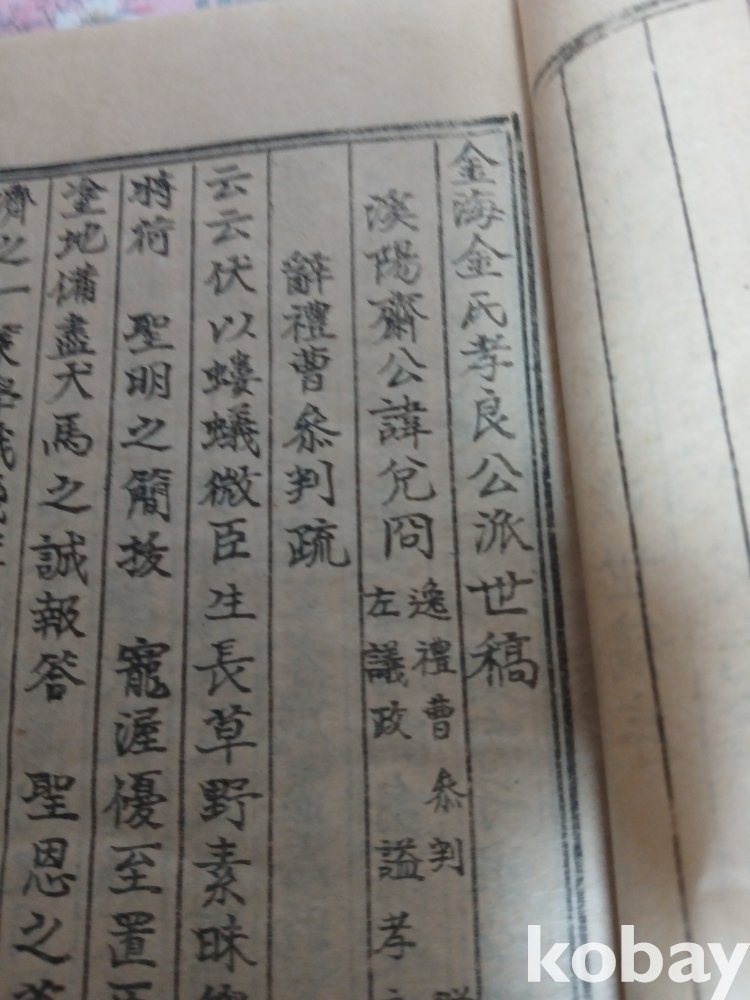 金海金氏孝良公派世稿
溪陽齋公諱兌冏
逸禮曹參判
左議政 謚孝
辭禮曹叅判疏
云云伏以螻蟻微臣生長草野素昧
時荷 聖明之簡拔 寵渥優至置
塗地備盡犬馬之誠報答 聖恩之
濟之一
kobay